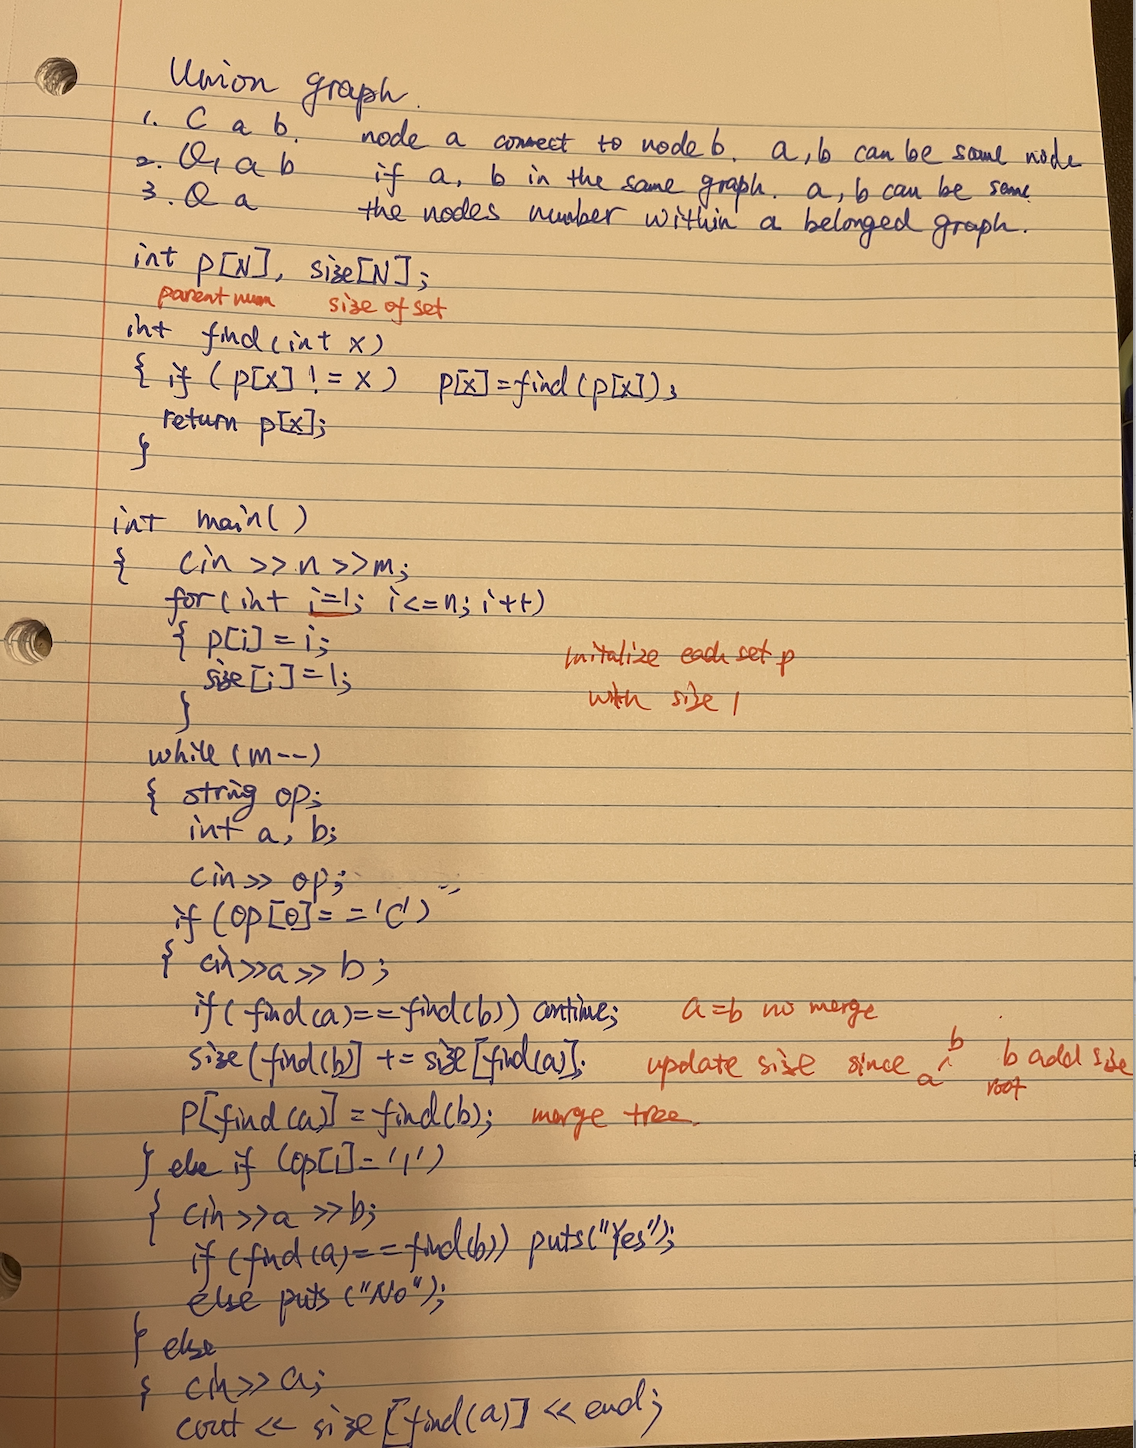 Union graph.
1. C a b. node a connect to node b. a, b can be same node
2. Q1 a b if a, b in the same graph. a, b can be same
3. Q a the nodes number within a belonged graph.
int p[N], size[N];
parent num size of set
int find(int x)
{ if (p[x] != x) p[x]=find(p[x]);
return p[x];
}
int main()
{ cin >> n >> m;
for(int i=1; i<=n; i++)
{ p[i] = i;
initalize each set p
size[i]=1;
with size 1
}
while (m--)
{ string op;
int a, b;
cin >> op;
if (op[0]=='C')
{ cin>>a>>b;
if(find(a)==find(b)) continue; a=b no merge
size(find(b)] += size[find(a)]; update size since a b b add size
root
p[find(a)] = find(b); merge tree.
} else if (op[1]='1')
{ cin>>a>>b;
if(find(a)==find(b)) puts("Yes");
else puts("No");
} else
{ cin>> a;
cout << size[find(a)] << end;